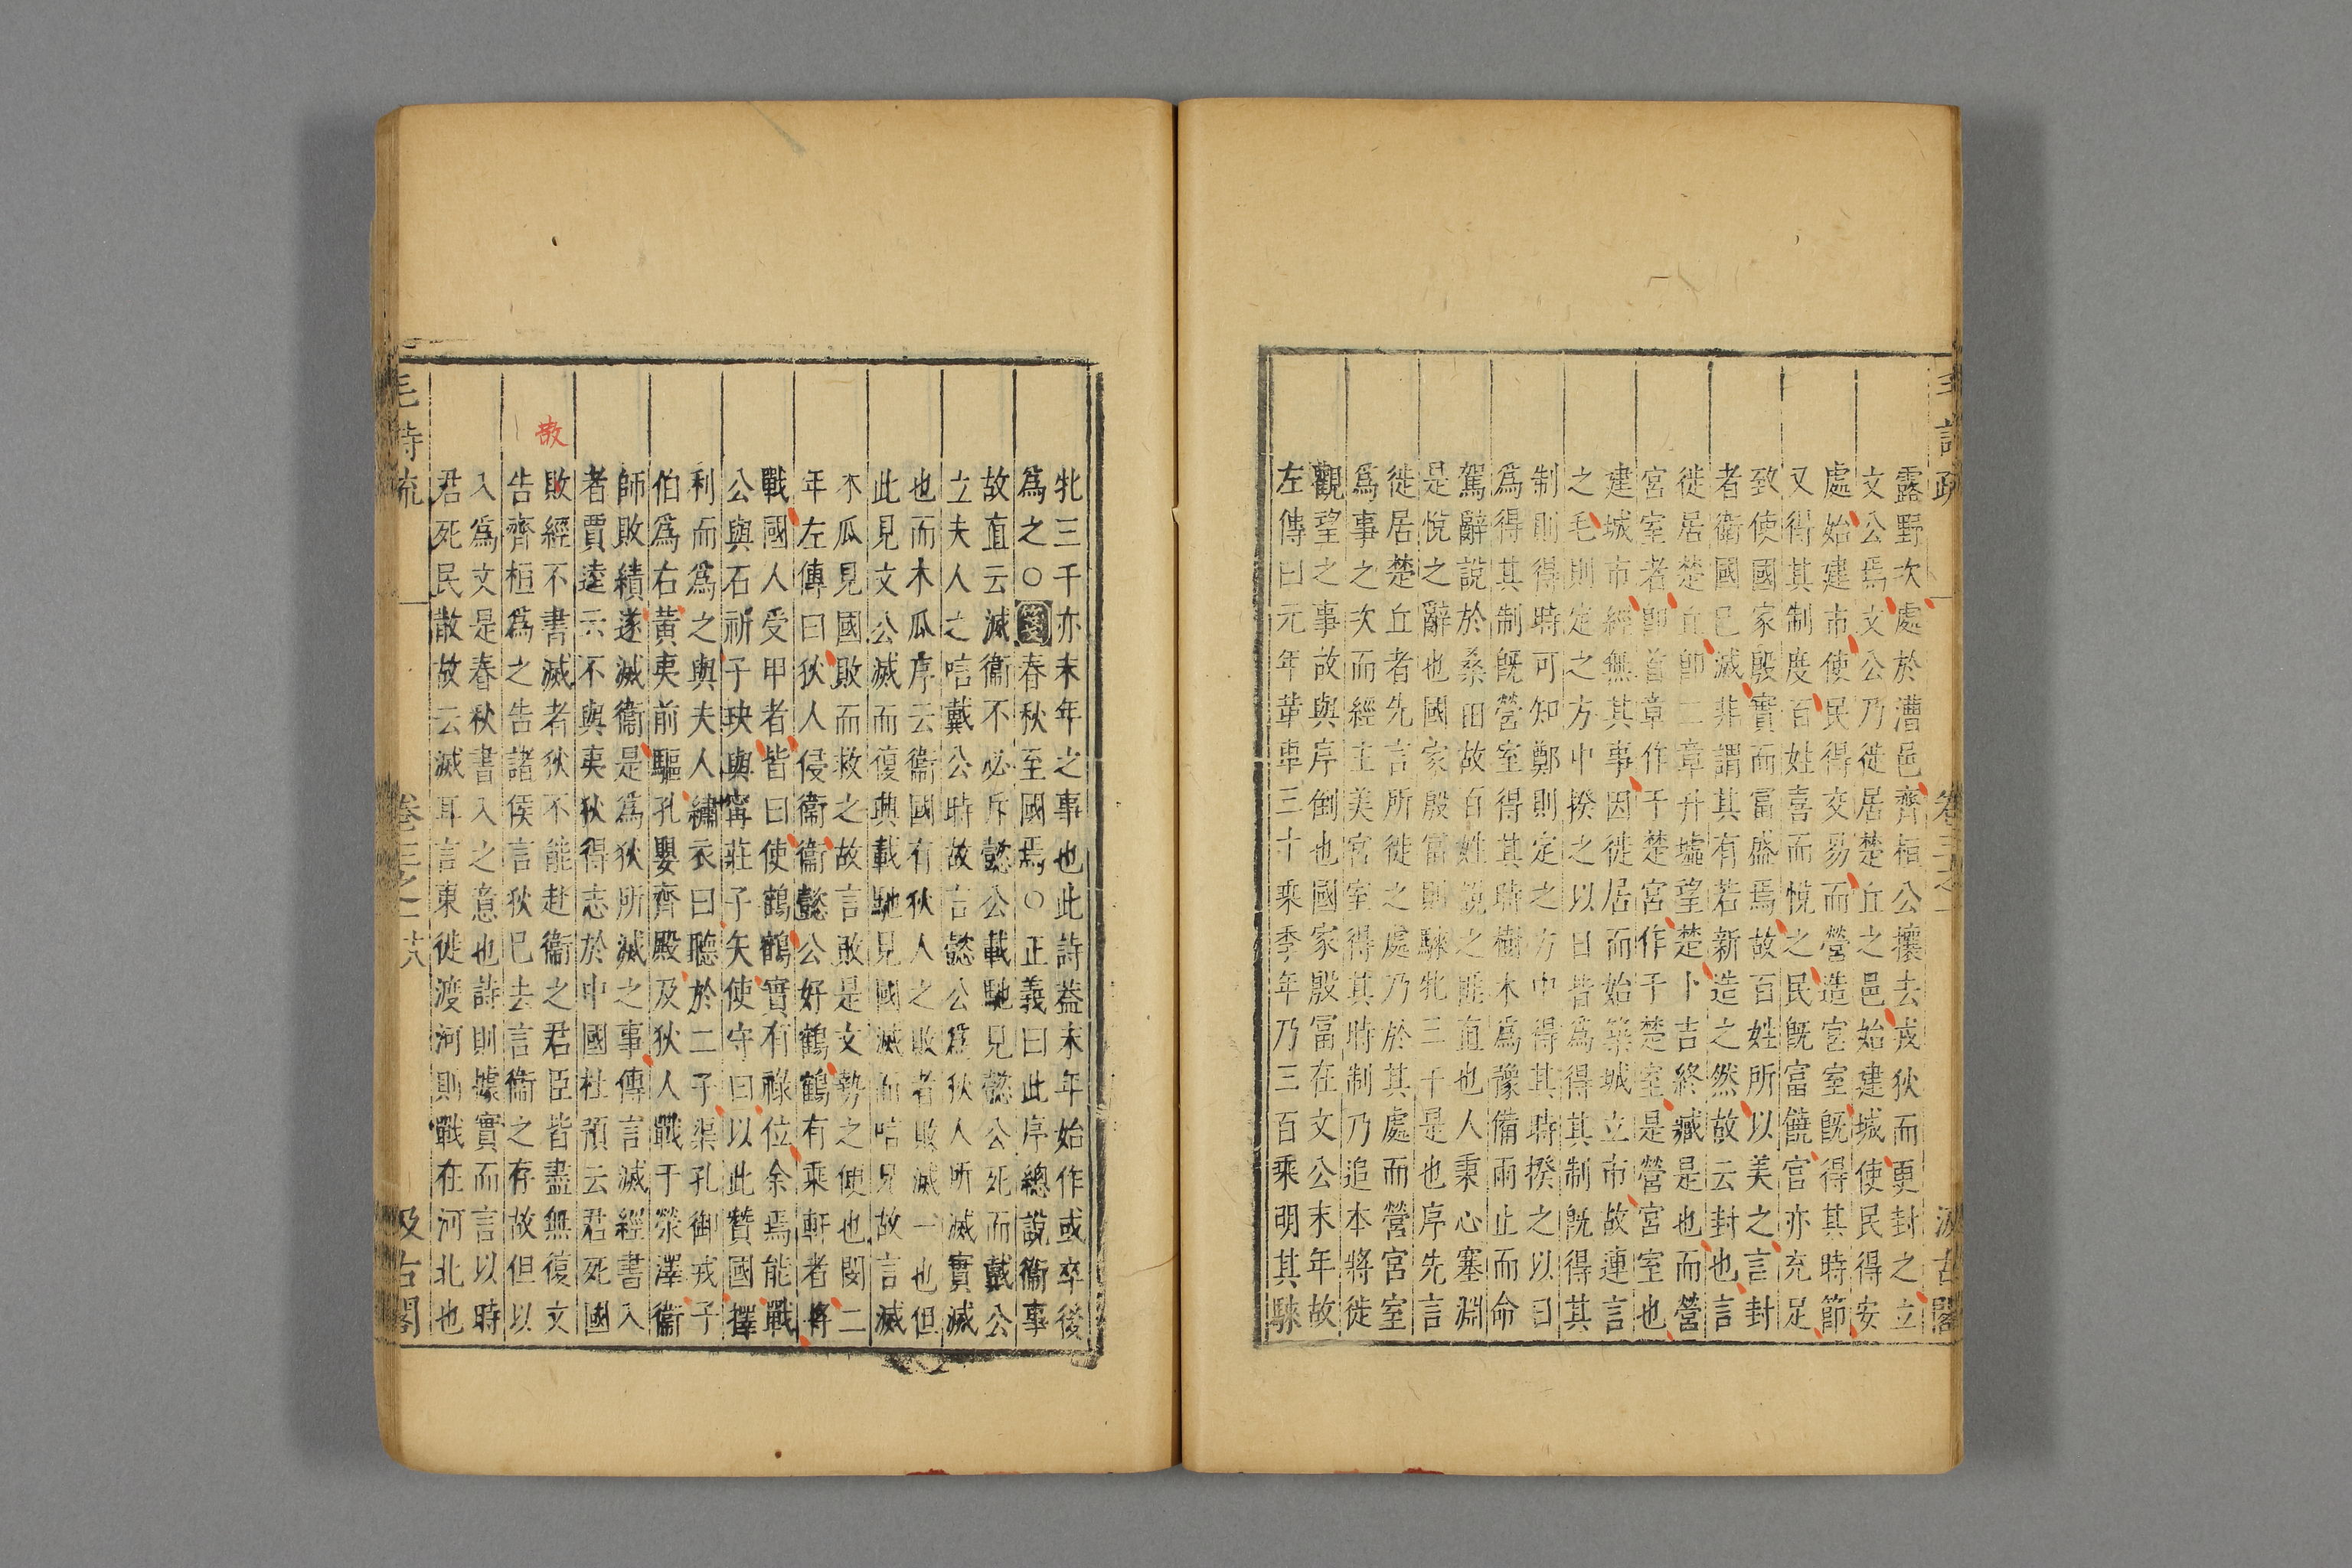 毛詩疏
卷三之一
汲古閣
露野次處於漕邑齊桓公攘去戎狄而更封之立
文公焉文公乃徙居楚丘之邑始建城使民得安
處始建市使民得交易而營造宮室旣得其時節
又得其制度百姓喜而悅之民旣富饒官亦充足
致使國家殷實而富盛焉故百姓所以美之言封
者衛國已滅非謂其有若新造之然故云封也言
徙居楚丘卽二章升墟望楚卜吉終臧是也而營
宮室者卽首章作于楚宮作于楚室是營宮室也
建城市經無其事因徙居而始築城立市故連言
之毛則定之方中揆之以日皆爲得其制旣得其
制則得時可知鄭則定之方中得其時揆之以日
爲得其制旣營室得其時樹木爲豫備雨止而命
駕辭說於桑田故百姓說之匪直也人秉心塞淵
是悅之辭也國家殷富則騋牝三千是也序先言
徙居楚丘者先言所徙之處乃於其處而營宮室
爲事之次而經主美宮室得其時制乃追本將徙
觀望之事故與序倒也國家殷冨在文公末年故
左傳曰元年革車三十乘季年乃三百乘明其騋
牝三千亦末年之事也此詩葢末年始作或卒後
爲之○箋春秋至國焉○正義曰此序總說衞事
故直云滅衞不必斥懿公載馳見懿公死而戴公
立夫人之唁戴公時故言懿公爲狄人所滅實滅
也而木瓜序云衞國有狄人之敗者敗滅一也但
此見文公滅而復興載馳見國滅而唁兄故言滅
木瓜見國敗而救之故言敗是文勢之便也閔二
年左傳曰狄人侵衞衞懿公好鶴鶴有乘軒者將
戰國人受甲者皆曰使鶴鶴實有祿位余焉能戰
公與石祈子玦與寗莊子矢使守曰以此贊國擇
利而爲之與夫人繡衣曰聽於二子渠孔御戎子
伯爲右黃夷前驅孔嬰齊殿及狄人戰于滎澤衞
師敗績遂滅衞是爲狄所滅之事傳言滅經書入
者賈逵云不與夷狄得志於中國杜預云君死國
敗經不書滅者狄不能赴衞之君臣皆盡無復文
告齊桓爲之告諸侯言狄已去言衞之存故但以
入爲文是春秋書入之意也詩則據實而言以時
君死民散故云滅耳言東徙渡河則戰在河北也
毛詩疏
卷三之一
廿六
汲古閣